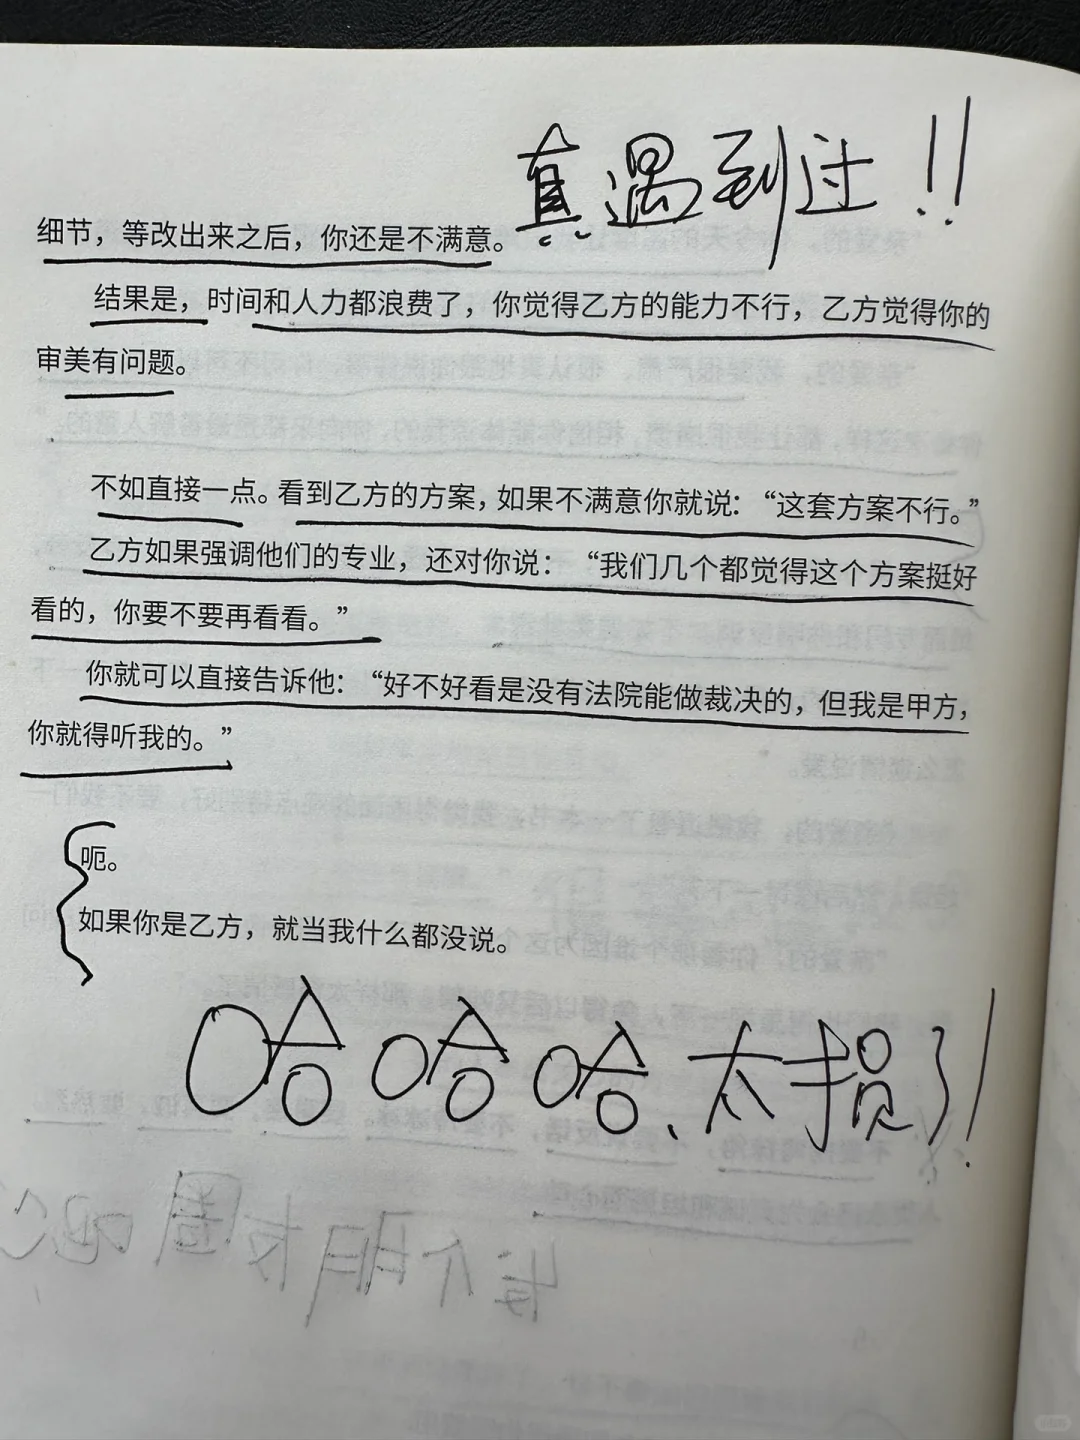 真遇到过!!
细节，等改出来之后，你还是不满意。
结果是，时间和人力都浪费了，你觉得乙方的能力不行，乙方觉得你的
审美有问题。
不如直接一点。看到乙方的方案，如果不满意你就说：“这套方案不行。”
乙方如果强调他们的专业，还对你说：“我们几个都觉得这个方案挺好
看的，你要不要再看看。”
你就可以直接告诉他：“好不好看是没有法院能做裁决的，但我是甲方，
你就得听我的。”
呃。
如果你是乙方，就当我什么都没说。
哈哈哈、太损了!